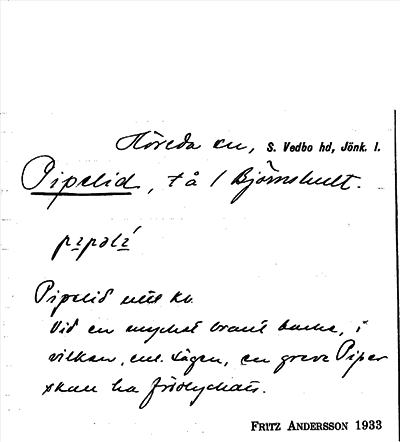 Höreda sn, S. Vedbo hd, Jönk. l.
Pipelid, t å 1 Björnshult.
pɪpəlɪ́
Pipelid
Vid en mycket brant backe, i
vilken, enl. sägen, en greve Piper
skall ha förolyckats.
FRITZ ANDERSSON 1933